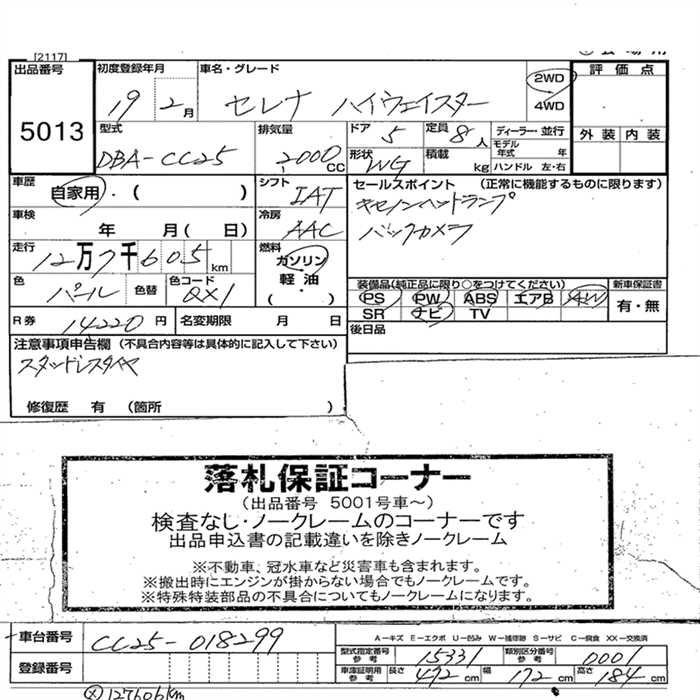 [2117]
出品番号 初度登録年月 車名・グレード 評価点
5013 19 2月 セレナ ハイウェイスター 2WD 4WD
外装 内装
型式 排気量 ドア 定員 ディーラー・並行
DBA-CC25 2000CC 5 8人 モデル年式 年
形状 WG 積載 kg ハンドル 左・右
車歴 自家用・( ) シフト IAT セールスポイント (正常に機能するものに限ります)
キセノンヘッドランプ
バックカメラ
車検 年 月(日) 冷房 AAC
走行 12万7千605km 燃料 ガソリン 軽油・( )
色 パール 色替 色コード QX1
装備品(純正品に限り○をつけてください) 新車保証書
PS PW ABS エアB AW 有・無
SR ナビ TV
R券 14220円 名変期限 月 日 後日品
注意事項申告欄 (不具合内容等は具体的に記入して下さい)
スタッドレスタイヤ
修復歴 有 (箇所 )
落札保証コーナー
(出品番号 5001号車~)
検査なし・ノークレームのコーナーです
出品申込書の記載違いを除きノークレーム
※不動車、冠水車など災害車も含まれます。
※搬出時にエンジンが掛からない場合でもノークレームです。
※特殊特装部品の不具合についてもノークレームになります。
車台番号 CC25-018299
A-キズ E-エクボ U-凹み W-補修跡 S-サビ C-腐食 XX-交換済
型式指定番号参考 15331 類別区分番号参考 0001
登録番号 車庫証明用参考 長さ 472cm 幅 172cm 高さ 184cm
127606km